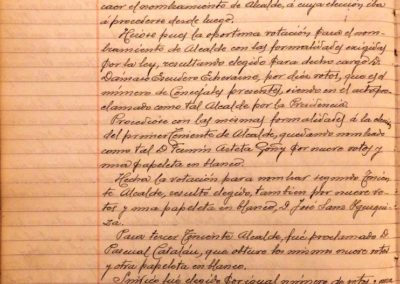 caer el nombramiento de Alcalde, á cuya eleccion iba
á procederse desde luego.
Hízose pues la oportuna votación para el nom-
bramiento de Alcalde con las formalidades exigidas
por la ley, resultando elegido para dicho cargo D.
Dámaso Escudero Echeraino, por diez votos, que es el
número de Concejales presentes, siendo en el acto pro-
clamado como tal Alcalde por la Presidencia.
Procedióse con las mismas formalidades á la
del primer Teniente de Alcalde, quedando nombrado
como tal D. Fermin Goñy por nueve votos y
una papeleta en blanco.
Hecha la votación para nombrar segundo Tenien-
te Alcalde, resultó elegido, tambien por nueve vo-
tos y una papeleta en blanco, D. José Sanz
Para tercer Teniente Alcalde, fué proclamado D.
Pascual Catalán, que obtuvo los mismos nueve votos
y otra papeleta en blanco.
Síndico fué elegido por igual número de votos y una